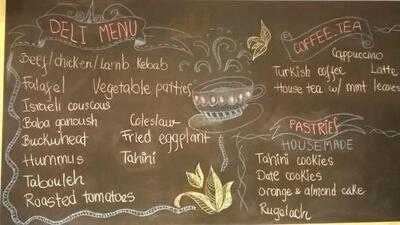 DELI MENU
Beef/chicken/lamb kebab
Falafel Vegetable patties
Israeli couscous
Baba ganoush Coleslaw
Buckwheat Fried eggplant
Hummus Tahini
Tabouleh
Roasted tomatoes
COFFEE TEA
Cappuccino
Turkish coffee Latte
House tea w/ mint leaves
PASTRIES
HOUSEMADE
Tahini cookies
Date cookies
Orange & almond cake
Rugelach